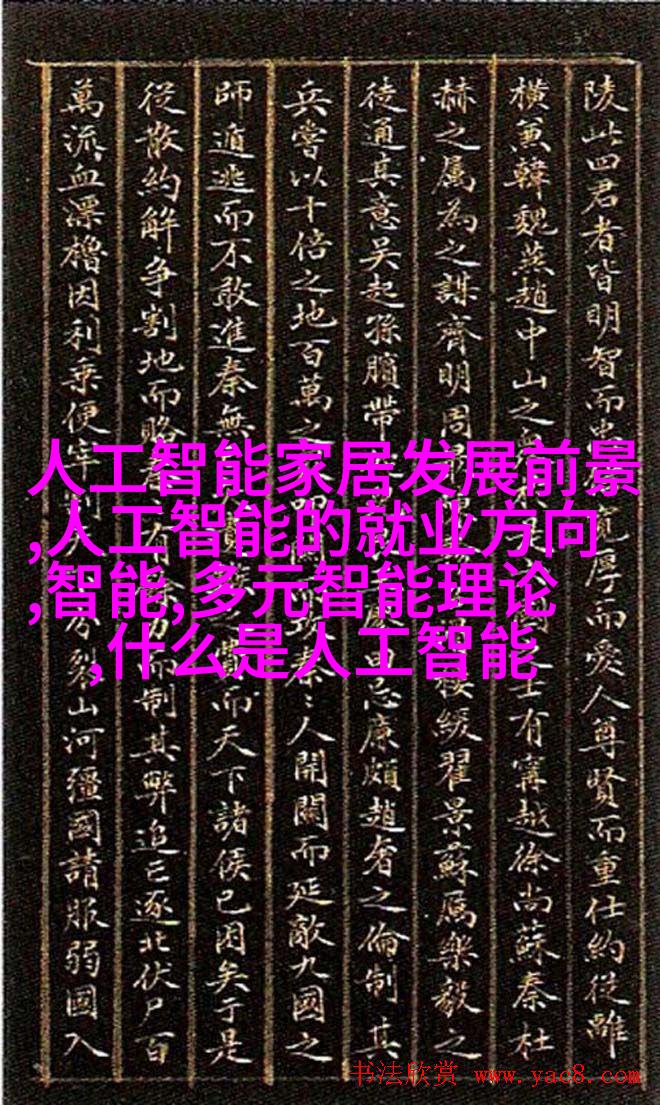 陵此四君者皆明智而忠寬厚而愛人尊賢而重仕約從離
橫兼韓魏燕趙中山之士有甯越徐尚蘇秦杜
赫之属為之謀齊明周樓緩翟景蘇厲樂毅之
徒通其意吴起孫臏帶忌廉頗趙奢之倫制其
兵嘗以十倍之地百萬之秦〻人開關而延敵九國之
師遁逃而不敢進秦無而天下諸侯已困矣于是
從散約解爭割地而賂而制其弊追亡逐北伏尸百
萬流血漂櫓因利乘便宰分裂山河彊國請服弱國入
人工智能家居发展前景
,人工智能的就业方向
,智能,多元智能理论
,什么是人工智能
书法欣赏 www.yac8.com